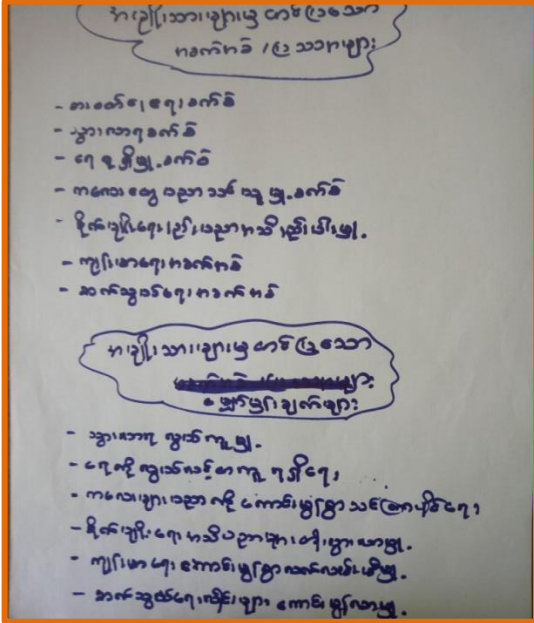 အမျိုးသားများမှ တင်ပြသော
အခက်အခဲ / ပြဿနာများ
- စားဝတ်နေရေးခက်ခဲ
- သွားလာရခက်ခဲ
- ရေရရှိမှု့ခက်ခဲ
- ကလေးတွေပညာသင်ယူမှု့ခက်ခဲ
- စိုက်ပျိုးရေးနည်းပညာအသိနည်းပါးမှု့
- ကျန်းမာရေးအခက်အခဲ
- ဆက်သွယ်ရေးအခက်အခဲ
အမျိုးသားများမှတင်ပြသော
မျှော်မှန်းချက်များ
- သွားလာရလွယ်ကူမှု့
- ရေကိုလွယ်လင့်တကူရရှိရေး
- ကလေးများပညာကိုကောင်းမွန်စွာသင်ကြားနိုင်ရေး
- စိုက်ပျိုးရေးအသိပညာများတိုးပွားလာမှု့
- ကျန်းမာရေးကောင်းမွန်စွာလက်လှမ်းမီမှု့
- ဆက်သွယ်ရေးလိုင်းများကောင်းမွန်လာမှု့